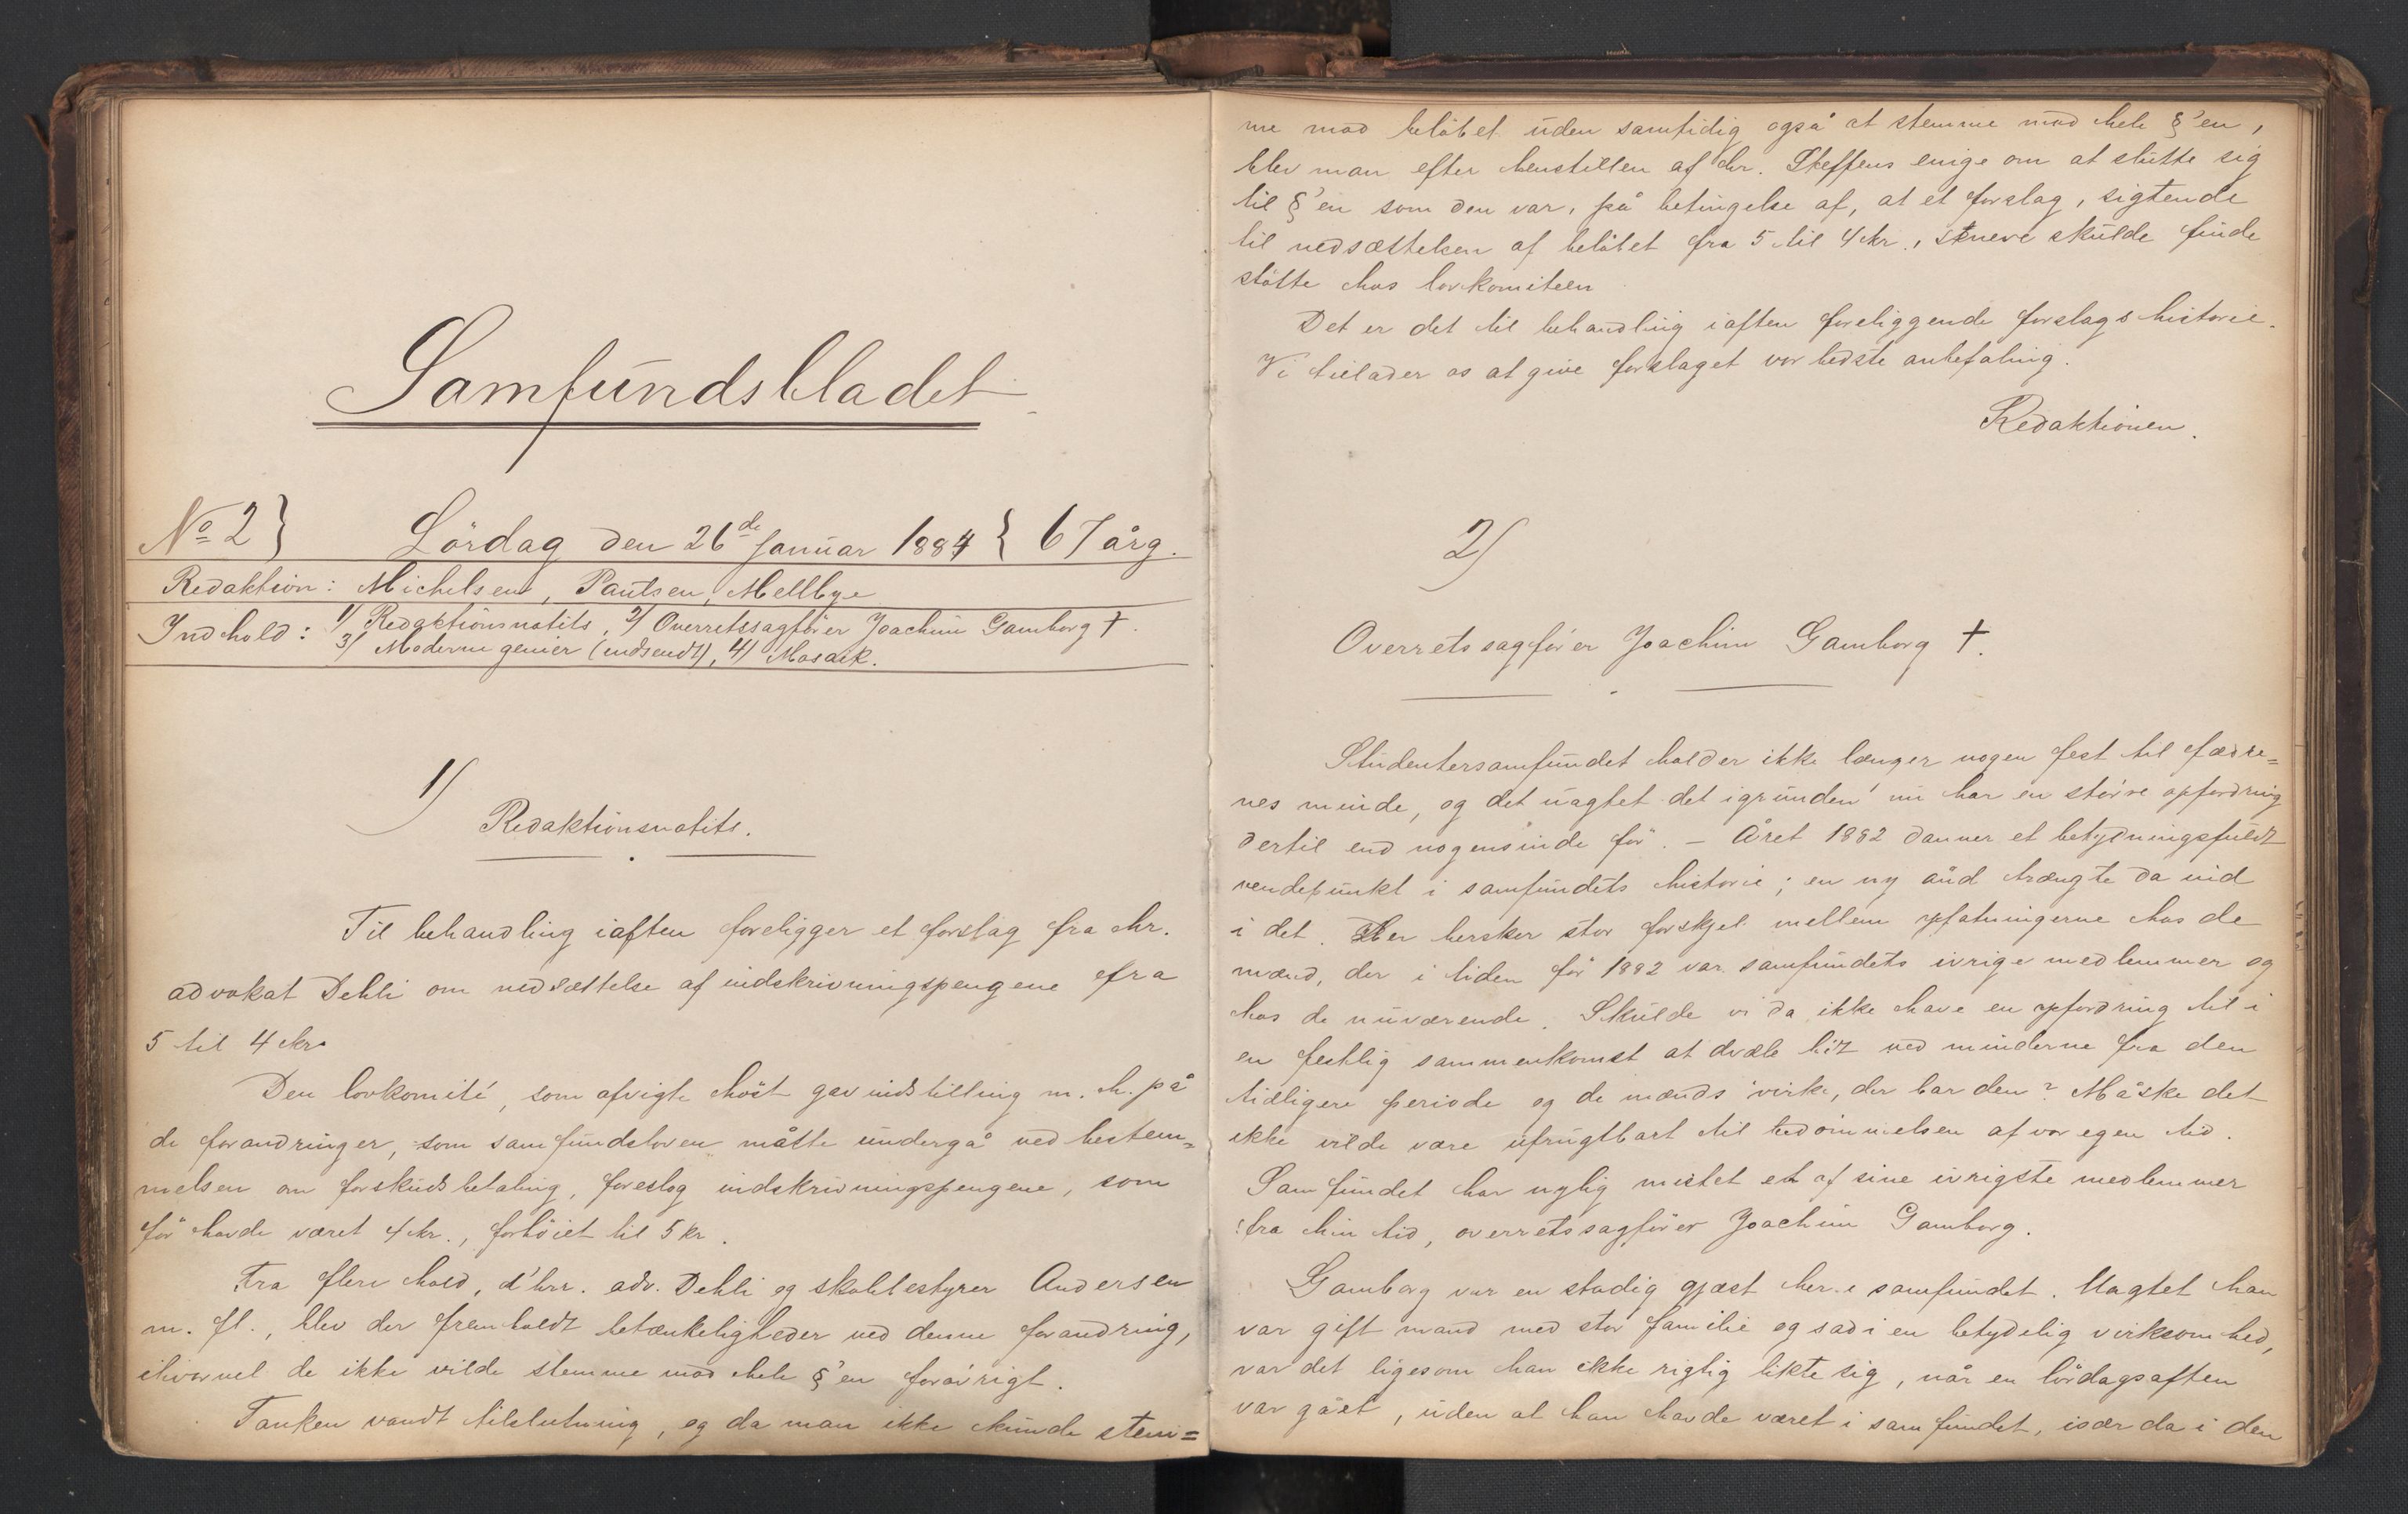 Samfundsbladet
No 2} Lördag den 26de Januar 1884 { 67 årg.
Redaktion: Michelsen, Paulsen, Mellbye
Indhold: 1/ Redaktionsnotits, 2/ Overretssagfører Joachim Gamborg †.
3/ Moderne genier (indsendt), 4/ Mosaik.
1)
Redaktionsnotits.
Til behandling iaften foreligger et forslag fra hr.
advokat Dehli om nedsættelse af indskrivningspengene fra
5 til 4 kr.
Den lovkomité, som afvigte høst gav indstilling m. h. på
de forandringer, som samfundsloven måtte undergå ved bestem=
melsen om forskudsbetaling, foreslog indskrivningspengene, som
før havde været 4 kr., forhöiet til 5 kr.
Fra flere hold, d'hrr. adv. Dehli og skolebestyrer Andersen
m. fl., blev der fremholdt betænkeligheder ved denne forandring,
ihvorvel de ikke vilde stemme mod hele §'en forøvrigt.
Tanken vandt tilslutning, og da man ikke kunde stem=
me mod belöbet uden samtidig også at stemme mod hele §'en,
blev man efter henstillen af hr. Steffens enige om at slutte sig
til §'en som den var, på betingelse af, at et forslag, sigtende
til nedsættelsen af belöbet fra 5 til 4 kr., skulde finde
stötte hos lovkomiteen
Det er det til behandling iaften foreliggende forslags historie.
Vi tillader os at give forslaget vor bedste anbefaling.
Redaktionen.
2)
Overretssagfører Joachim Gamborg †.
Studentersamfundet holder ikke længer nogen fest til fædre=
nes minde, og det uagtet det igrunden nu har en större opfordring
dertil end nogensinde för. – Året 1882 danner et betydningsfuldt
vendepunkt i samfundets historie; en ny ånd trængte da ind
i det. Der hersker stor forskjel mellem opfatningerne hos de
mænd, der i tiden för 1882 var samfundets ivrige medlemmer og
hos de nuværende. Skulde vi da ikke have en opfordring til i
en festlig sammenkomst at dvæle lidt ved minderne fra den
tidligere periode og de mænds virke, der bar den? Måske det
ikke vilde være ufrugtbart til bedömmelsen af vor egen tid.
Samfundet har nylig mistet et af sine ivrigste medlemmer
fra hin tid, overretssagfører Joachim Gamborg.
Gamborg var en stadig gjæst her i samfundet. Uagtet han
var gift mand med stor familie og sad i en betydelig virksomhed,
var det ligesom han ikke rigtig likte sig, når en lördagsaften
var gået, uden at han havde været i samfundet, især da i den